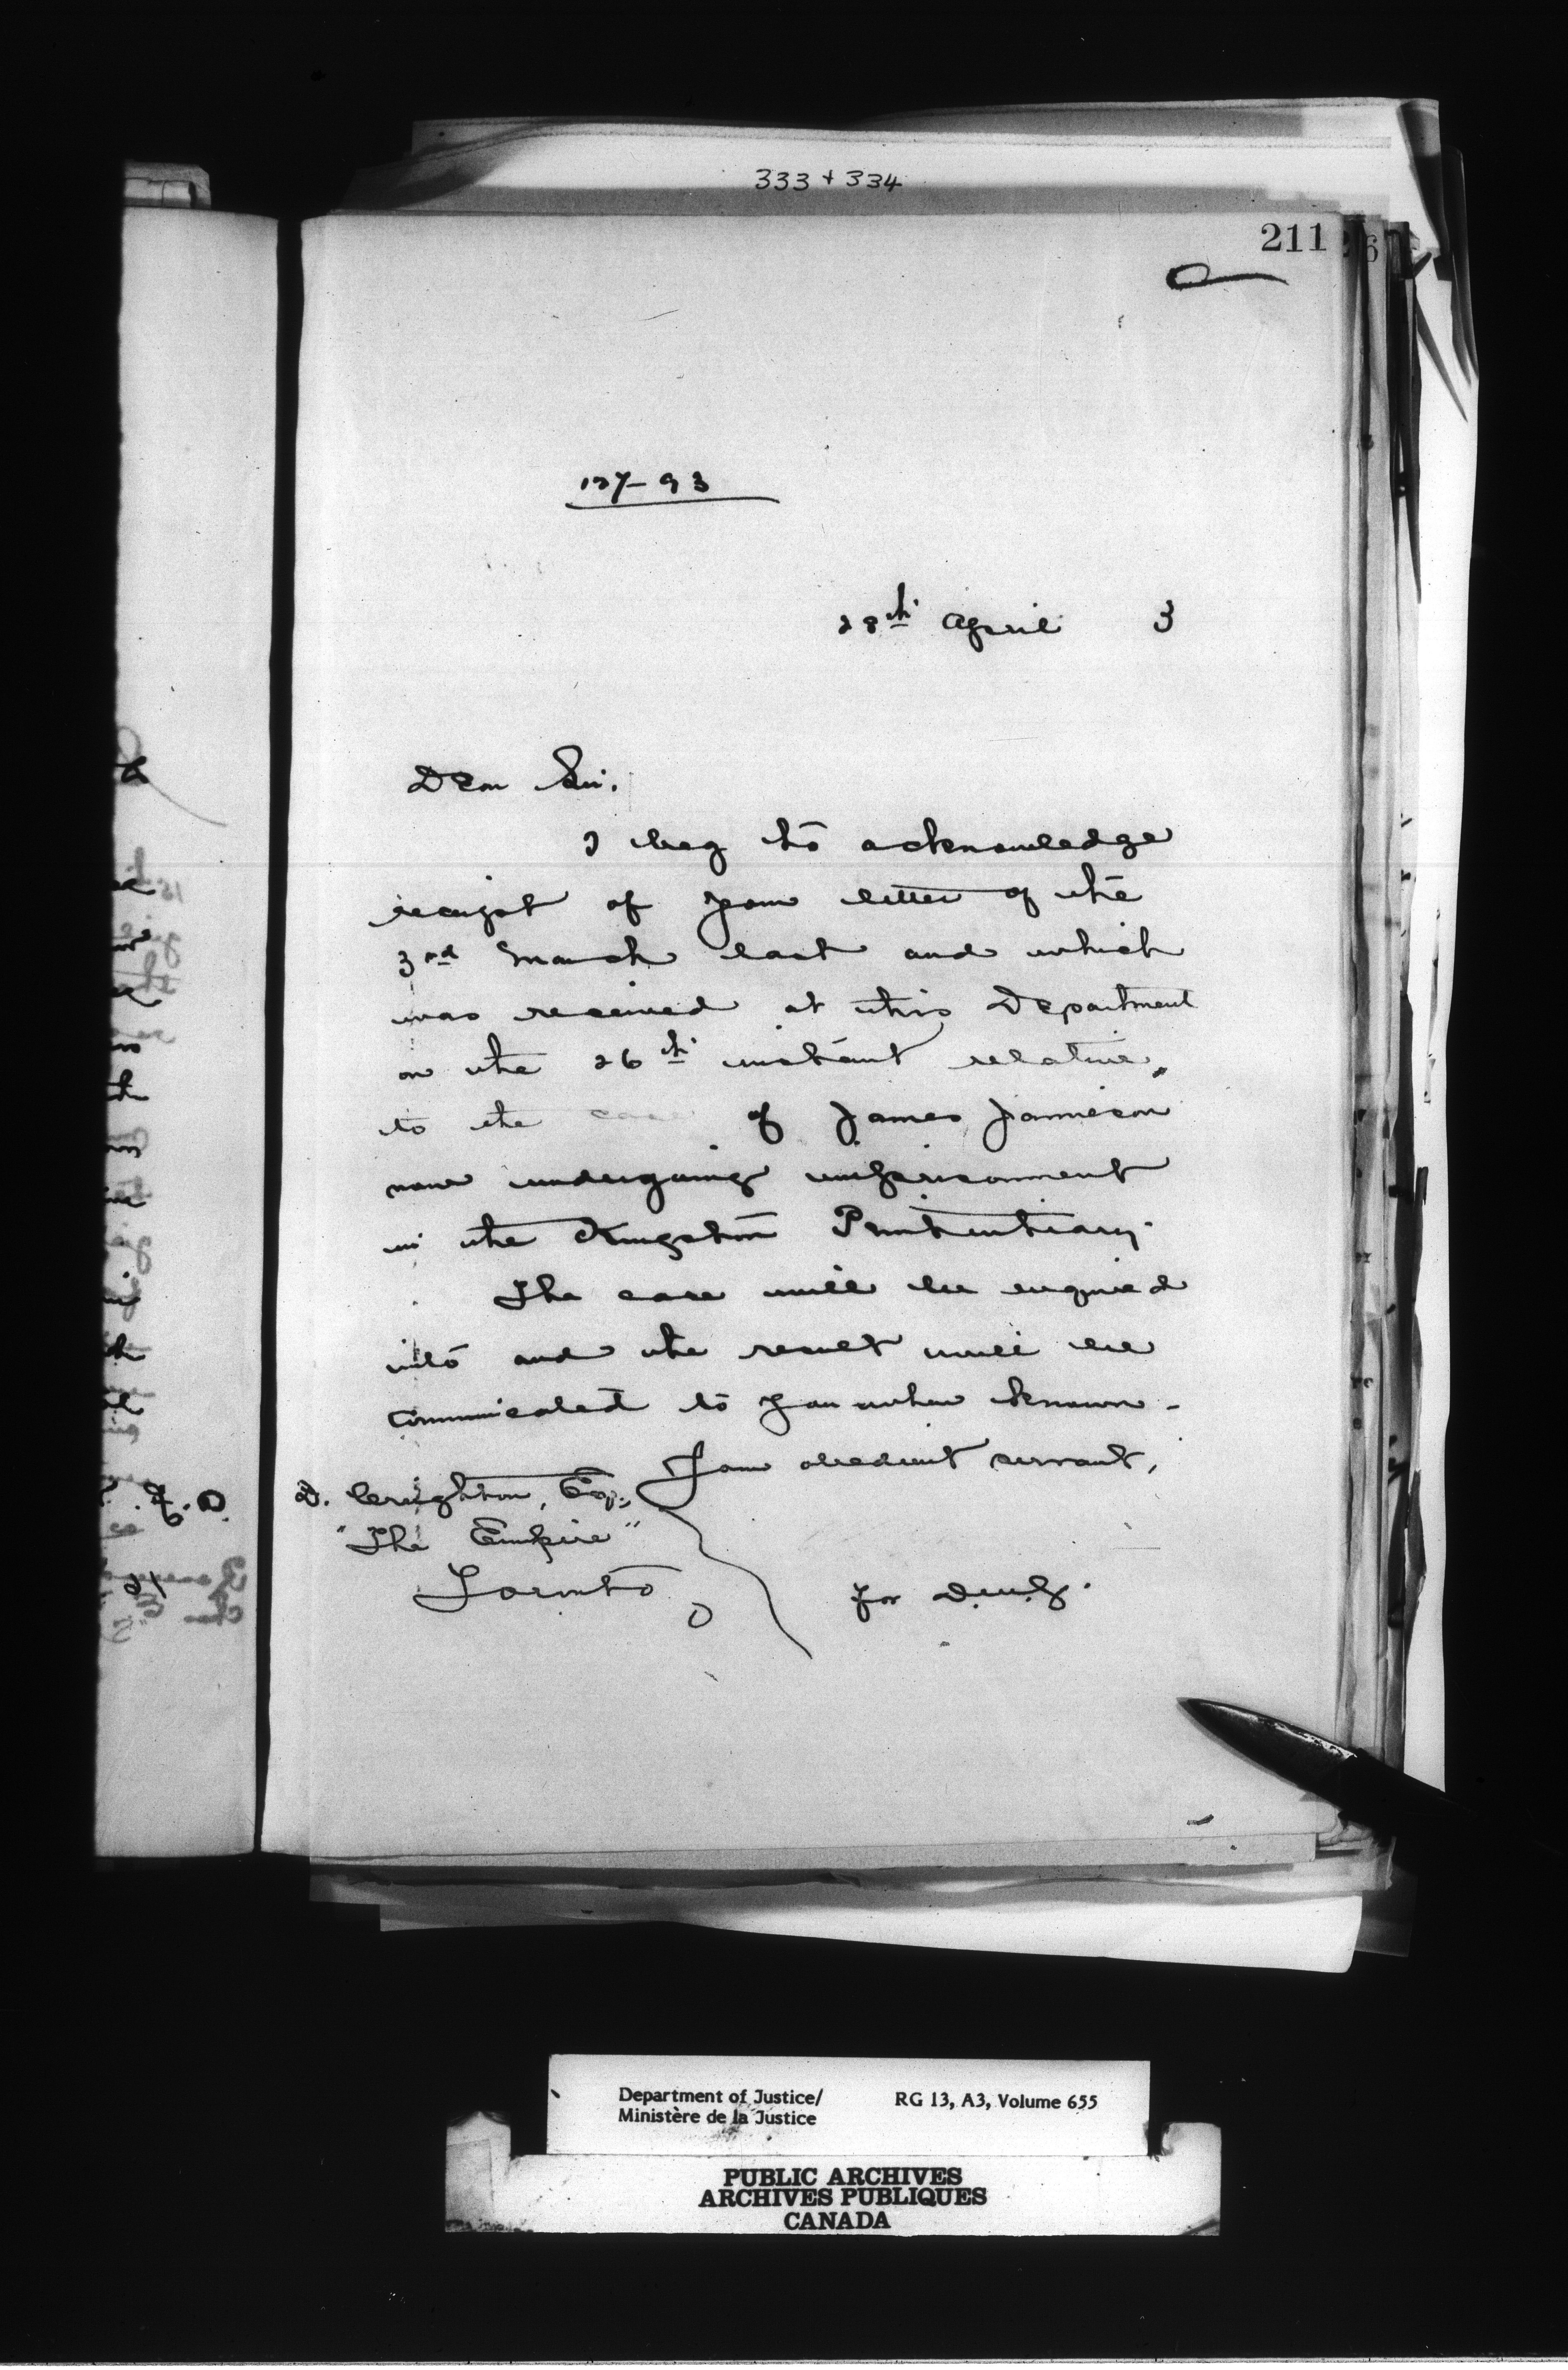 333 + 334
211
127-93
28th April 3
Dear Sir.
I beg to acknowledge
receipt of your letter of the
3rd March last and which
was received at this Department
on the 26th instant relative
to the case of James Jamieson
now undergoing imprisonment
in the Kingston Penitentiary.
The case will be enquired
into and the result will be
communicated to you when known.
Your obedient servant,
D. Creighton, Esq.,
"The Empire"
Toronto
for D.M.J.
Department of Justice/
Ministère de la Justice
RG 13, A3, Volume 655
PUBLIC ARCHIVES
ARCHIVES PUBLIQUES
CANADA